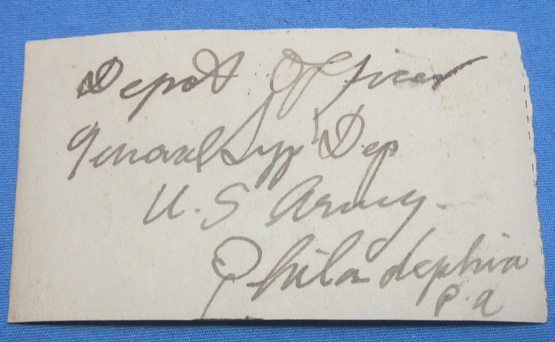 Depot Officer
General Sup Dep
U.S Army.
Philadephia
P.a